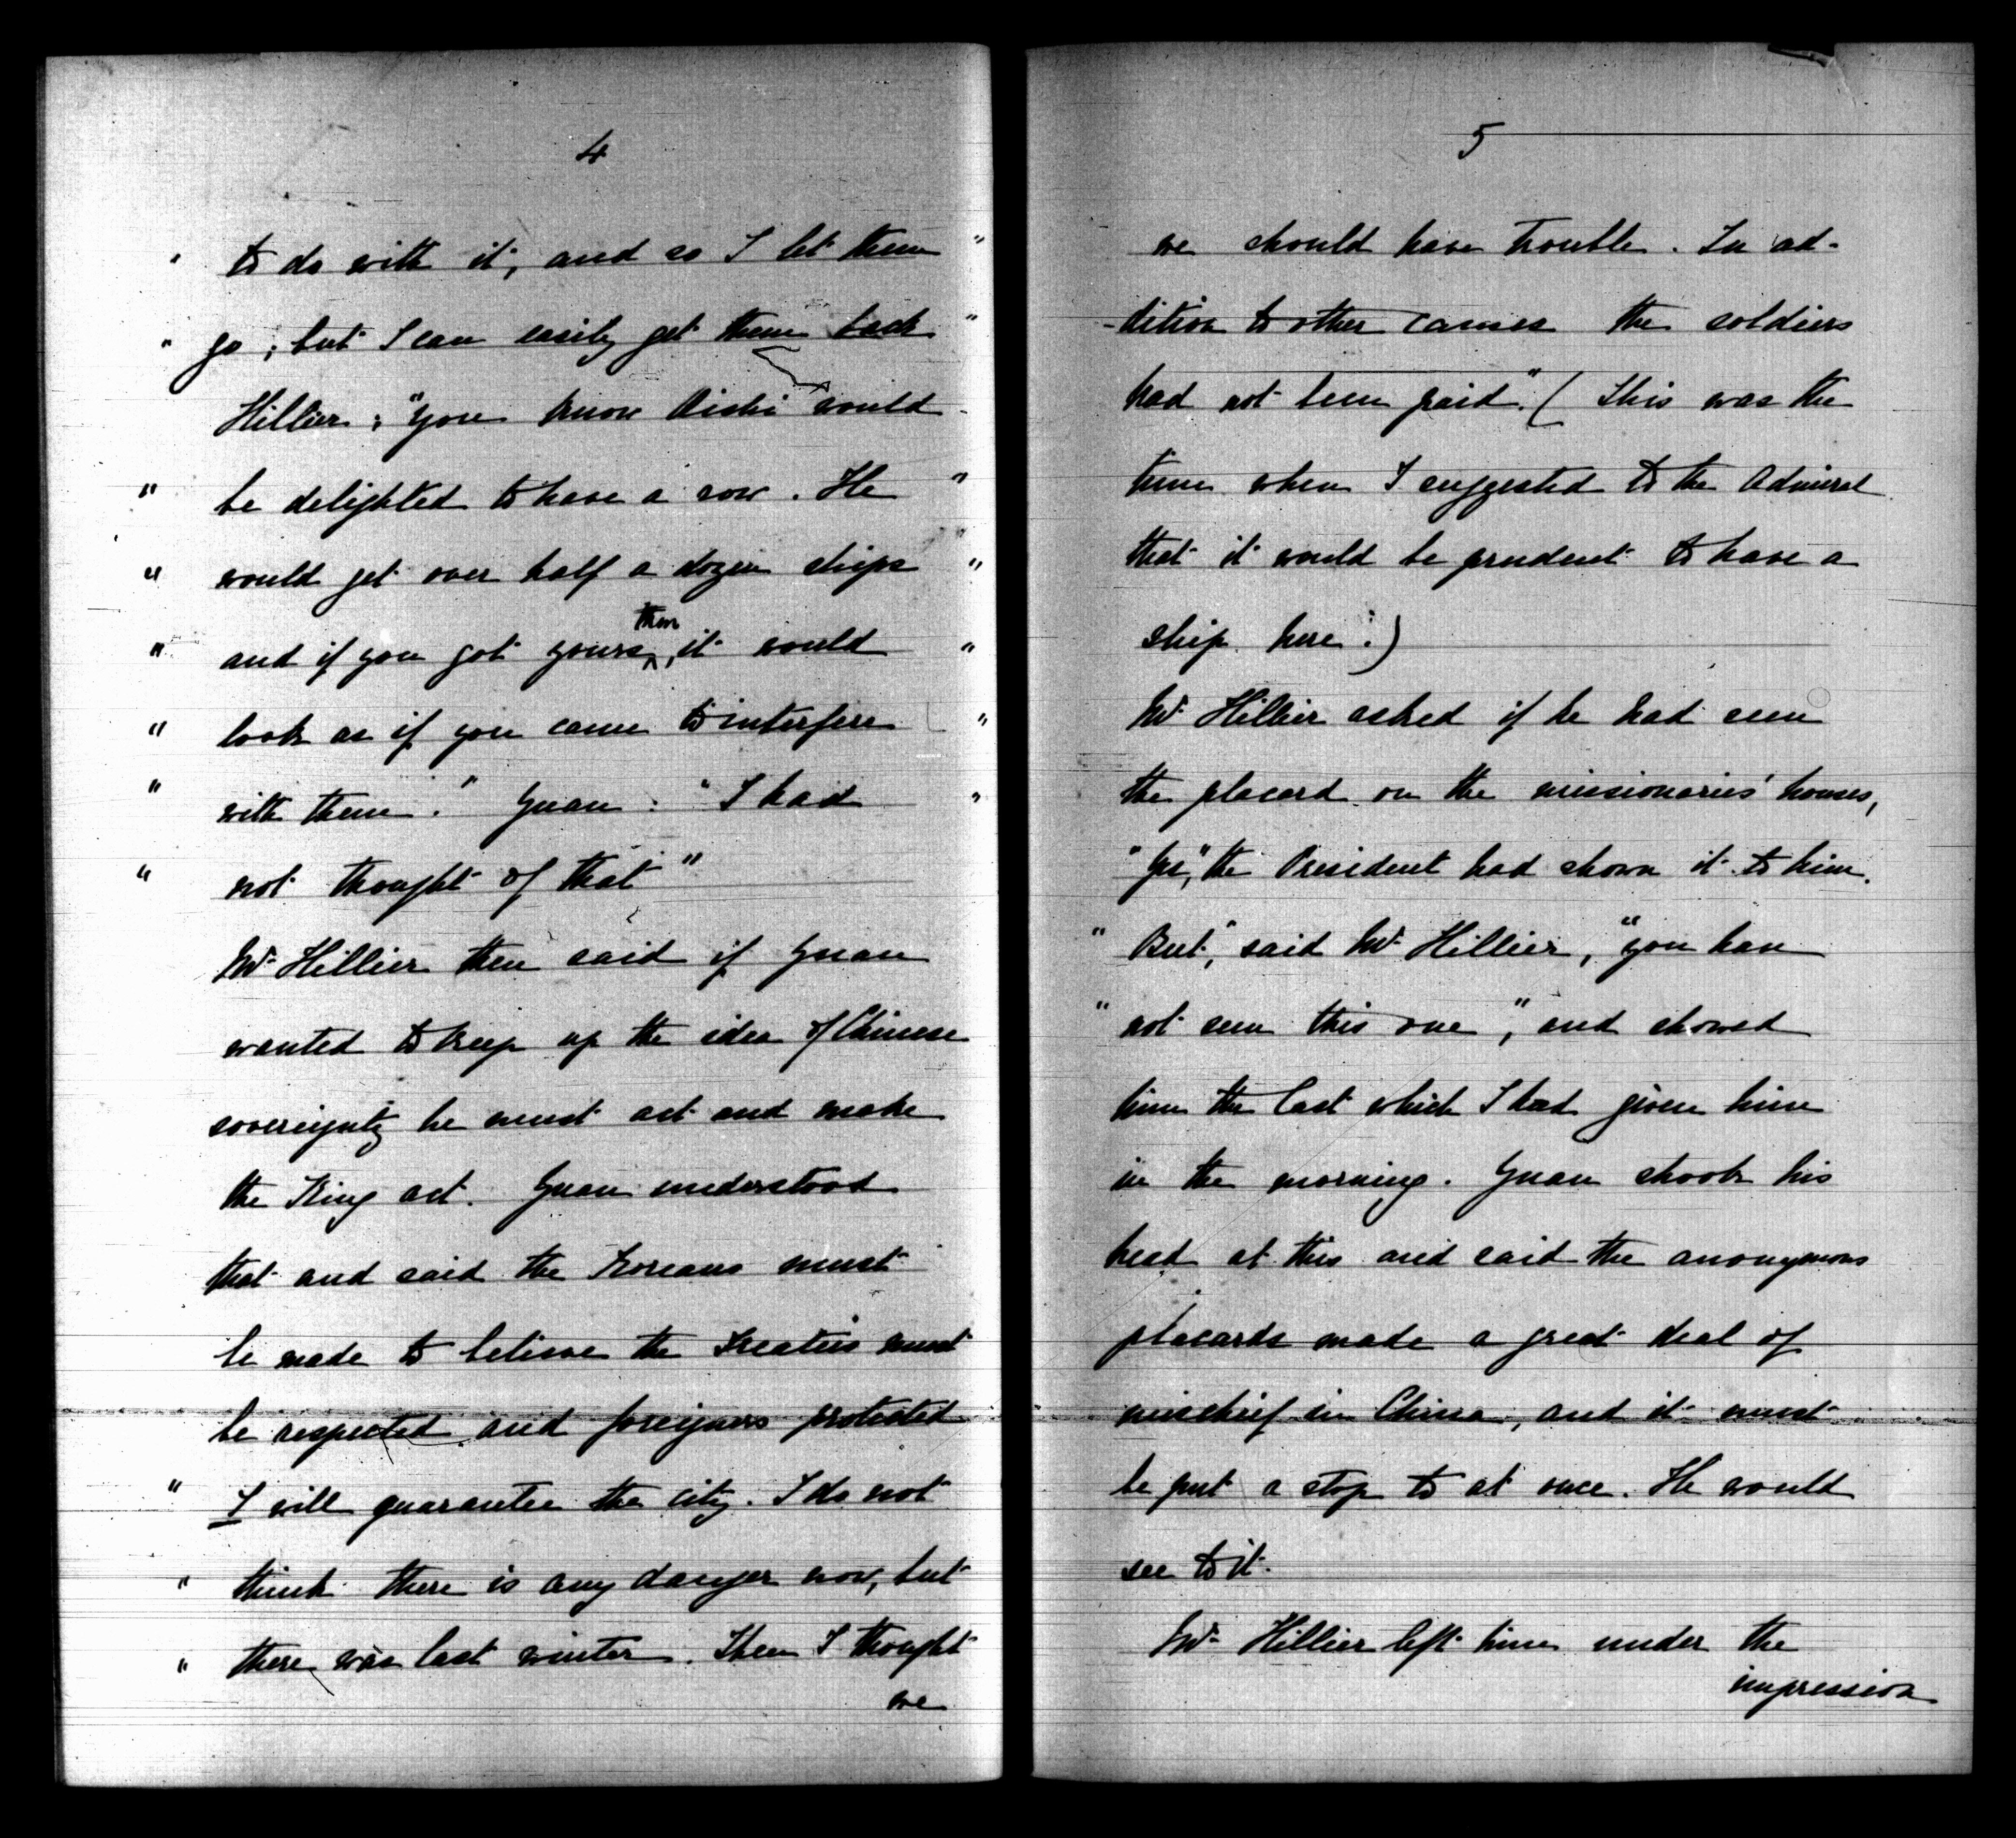 4
" to do with it, and so I let them "
" go; but I can easily get them back "
Hillier: "You know Oishi would
" be delighted to have a row. He "
" would get over half a dozen ships "
then
" and if you got yours, it would "
" look as if you came to interfere "
" with them." Yuan: "I had "
" not thought of that"
Mr Hillier then said if Yuan
wanted to keep up the idea of Chinese
sovereignty he must act and make
the King act. Yuan understood
that and said the Koreans must
be made to believe the Treaties must
be respected and foreigners protected
" I will guarantee the city. I do not
" think there is any danger now, but
" there was last winter. Then I thought
we
5
we should have trouble. In ad-
-dition to other causes the soldiers
had not been paid". (This was the
time when I suggested to the Admiral
that it would be prudent to have a
ship here.)
Mr Hillier asked if he had seen
the placard on the missionaries' houses,
"Yes," the President had shown it to him.
" But," said Mr Hillier, "you have
" not seen this one", and showed
him the last which I had given him
in the morning. Yuan shook his
head at this and said the anonymous
placards made a great deal of
mischief in China, and it must
be put a stop to at once. He would
see to it.
Mr Hillier left him under the
impression